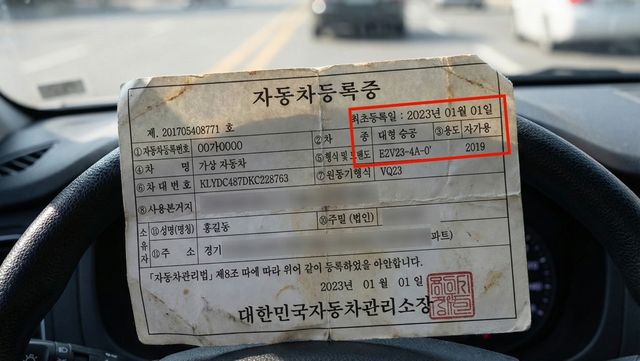 자동차등록증
최초등록일 : 2023년 01월 01일
제. 201705408771 호
①자동차등록번호 00가0000 ②차 종 대형 승공 ③용도 자가용
④차 명 가상 자동차 ⑤형식 및 E2V23-4A-0' 2019
⑥차 대 번 호 KLYDC487DKC228763 ⑦원동기형식 VQ23
⑧사용본거지
소유자 ⑪성명(명칭) 홍길동 (법인)
⑫주 소 경기 파트)
「자동차관리법」 제8조 따에 따라 위어 같이 등록하었을 아안합니다.
2023년 01 월 01 일
대한민국자동차관리소장